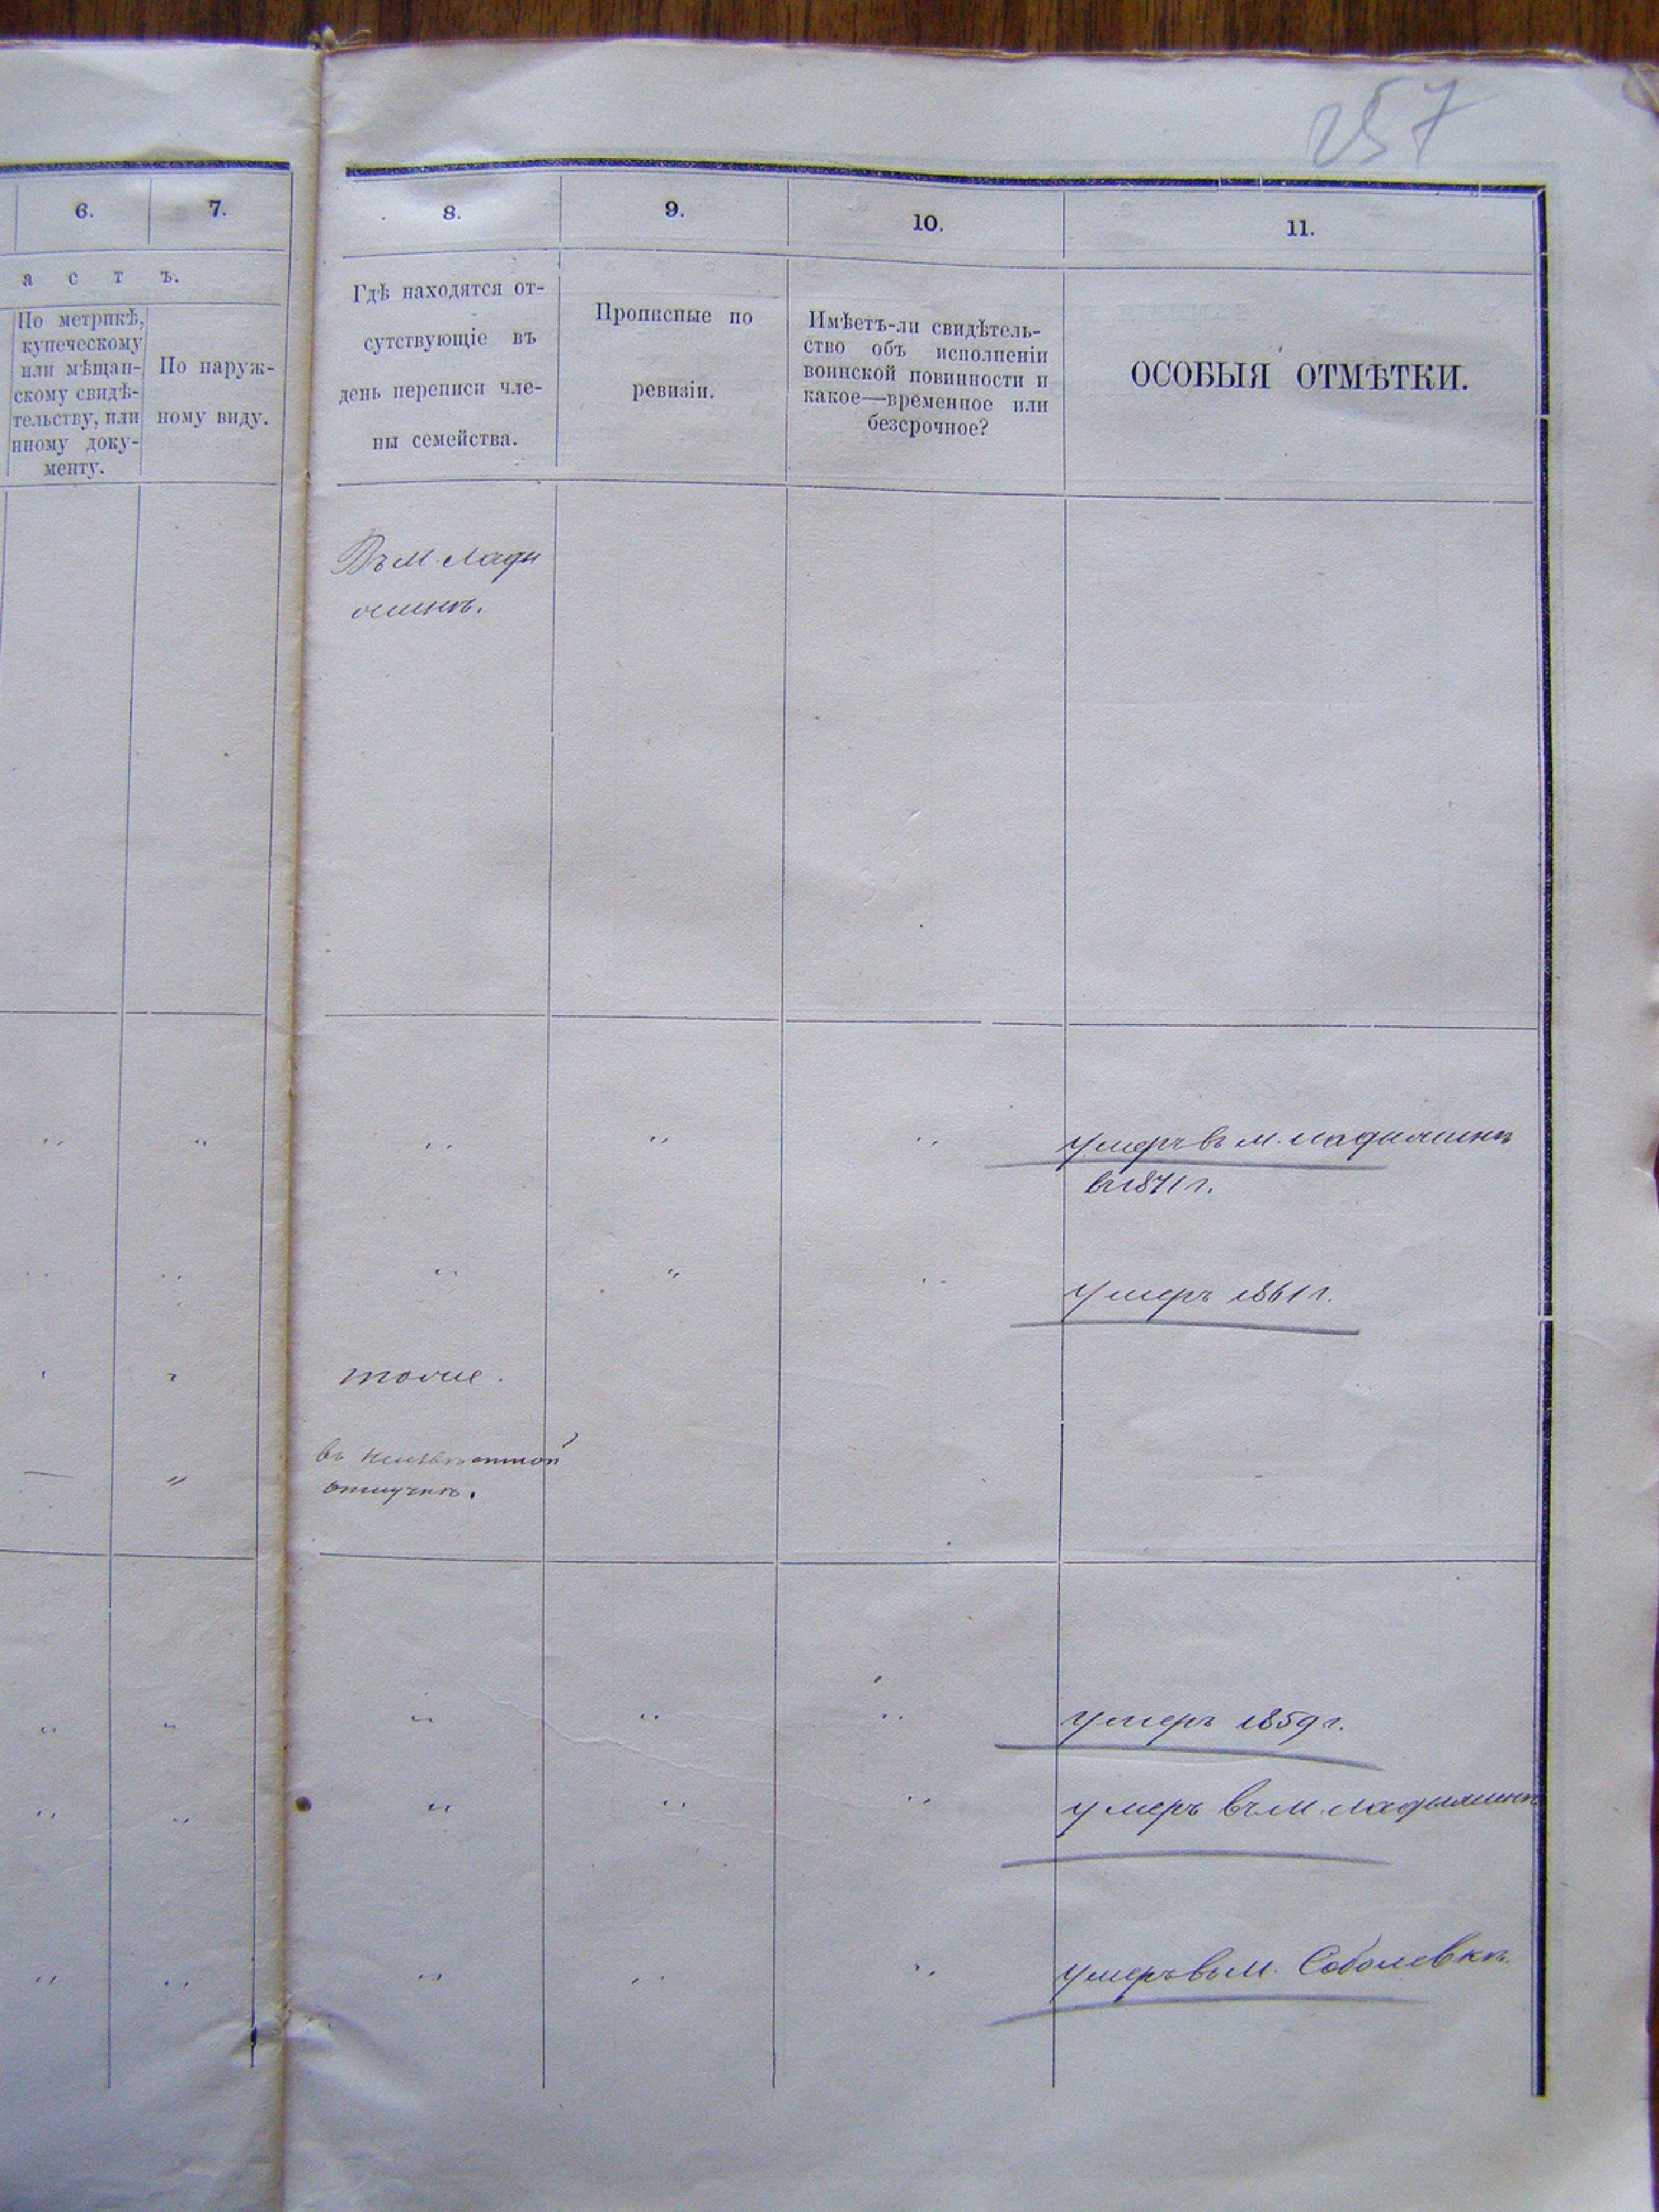 257
6.
7.
8.
9.
10.
11.
а с т ъ.
По метрикѣ,
купеческому
или мѣщан-
скому свидѣ-
тельству, или
иному доку-
менту.
По наруж-
ному виду.
Гдѣ находятся от-
сутствующіе въ
день переписи чле-
ны семейства.
Прописные по
ревизіи.
Имѣетъ-ли свидѣтель-
ство объ исполненіи
воинской повинности и
какое—временное или
безсрочное?
ОСОБЫЯ ОТМѢТКИ.
Въ М. Лады
жинѣ.
умеръ въ м. Ладыжинѣ
въ 1871 г.
умеръ 1861 г.
тоже.
въ неизвѣстной
отлучкѣ.
умеръ 1859 г.
умеръ въ М. Ладыжинѣ
умеръ въ М. Соболевкѣ.